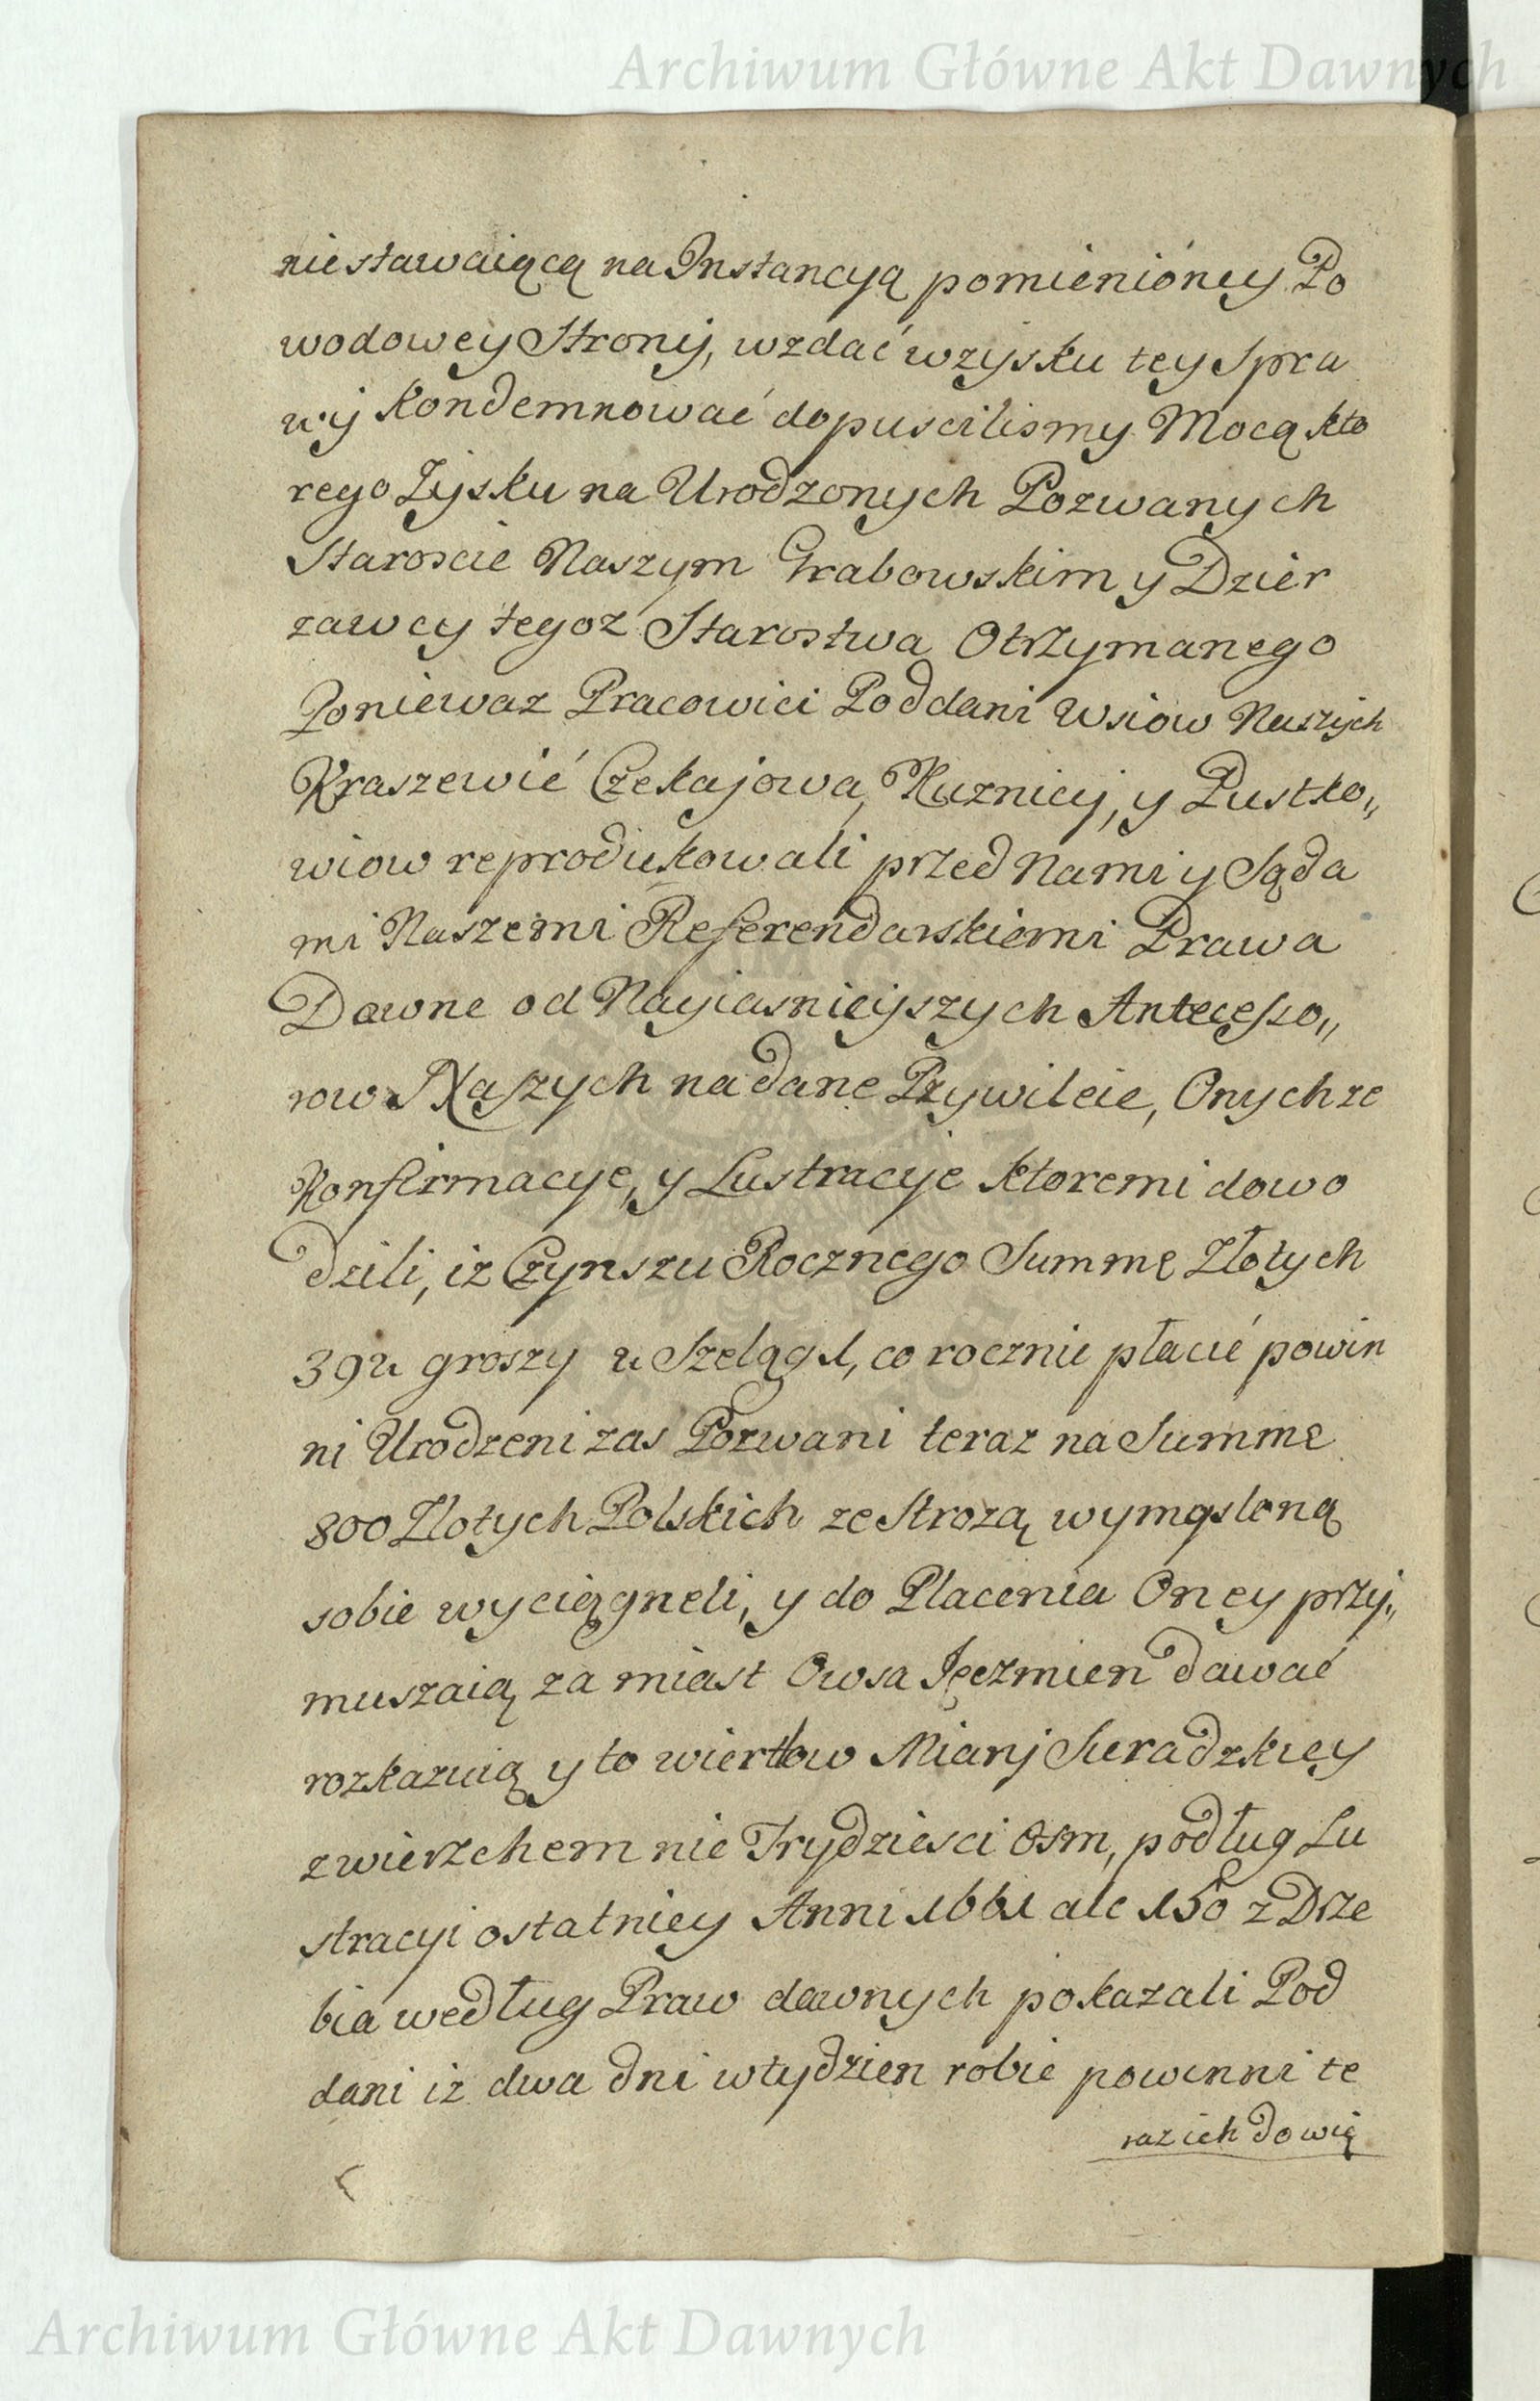 Archiwum Główne Akt Dawnych
niestawaiącą na Instancyą pomienióney Po
wodowey Strony, wzdać wzysku tey Spra
wy kondemnować dopuscilismy Mocą kto
rego Zysku na Urodzonych Pozwanych
Staroscie Naszym Grabowskim y Dzier
zawcy tegoz Starostwa Otrzymanego
Poniewaz Pracowici Poddani Wsiow Naszych
Kraszewić Czekajowa, Kuznicy, y Pustko„
wiow reprodukowali przed Nami y Sąda
mi Naszemi Referendarskiemi Prawa
Dawne od Nayiasnieyszych Antecesso„
row Naszych nadane Przywileie, Onychze
Konfirmacye, y Lustracye ktoremi dowo
dzili, iz Czynszu Rocznego Summę Złotych
392 groszy 2 Szeląg 1, co rocznie płacić powin
ni Urodzeni zas Pozwani teraz na Summę
800 Zlotych Polskich ze Strozą wymysloną
sobie wyciągneli, y do Placenia Oney przy„
muszaią za miast Owsa Jęczmien dawać
rozkazuią y to wiertlow Miary Sieradzkiey
zwierzchem nie Trydziesci Osm, podług Lu
stracyi ostatniey Anni 1661 ale 150 z Drze
bia według Praw dawnych pokazali Pod
dani iz dwa dni wtydzien robić powinni te
raz ich do wię
Archiwum Główne Akt Dawnych